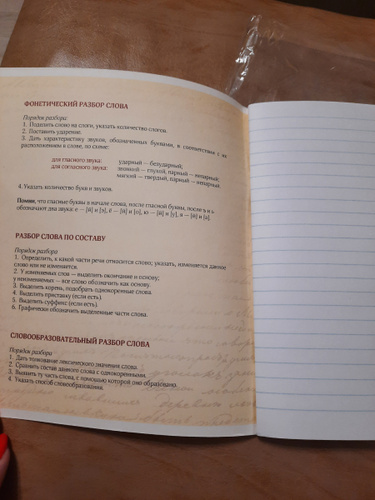 ФОНЕТИЧЕСКИЙ РАЗБОР СЛОВА
Порядок разбора
1. Поделить слово на слоги, указать количество слогов.
2. Поставить ударение.
3. Дать характеристику звуков, обозначенных буквами, в соответствии с их
расположением в слове, по схеме:
для гласного звука: ударный — безударный;
для согласного звука: звонкий — глухой, парный — непарный;
мягкий — твердый, парный — непарный.
4. Указать количество букв и звуков.
Помни, что гласные буквы в начале слова, после гласной буквы, после ъ и ь
обозначают два звука: е — [й] и [э], ё — [й] и [о], ю — [й] и [у], я — [й] и [а].
РАЗБОР СЛОВА ПО СОСТАВУ
Порядок разбора
1. Определить, к какой части речи относится слово; указать, изменяется данное
слово или не изменяется.
2. У изменяемых слов — выделить окончание и основу;
у неизменяемых — все слово обозначить как основу.
3. Выделить корень, подобрать однокоренные слова.
4. Выделить приставку (если есть).
5. Выделить суффикс (если есть).
6. Графически обозначить выделенные части слова.
СЛОВООБРАЗОВАТЕЛЬНЫЙ РАЗБОР СЛОВА
Порядок разбора
1. Дать толкование лексического значения слова.
2. Сравнить состав данного слова с однокоренными.
3. Выявить ту часть слова, с помощью которой оно образовано.
4. Указать способ словообразования.